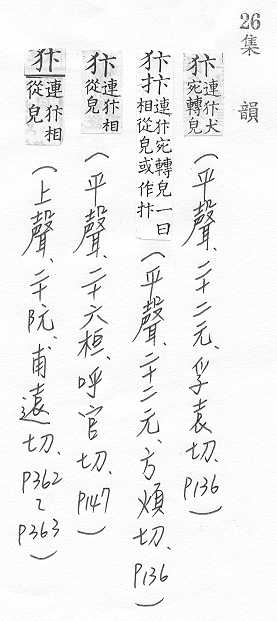 26集 韻
犿連犿犬宛轉皃(平聲、二十二元、孚袁切、P136)
犿抃連犿宛轉皃一曰相從皃或作抃(平聲、二十二元、方煩切、P136)
犿連犿相從皃(平聲、二十六桓、呼官切、P147)
犿連犿相從皃(上聲、二十阮、甫遠切、P362~P363)